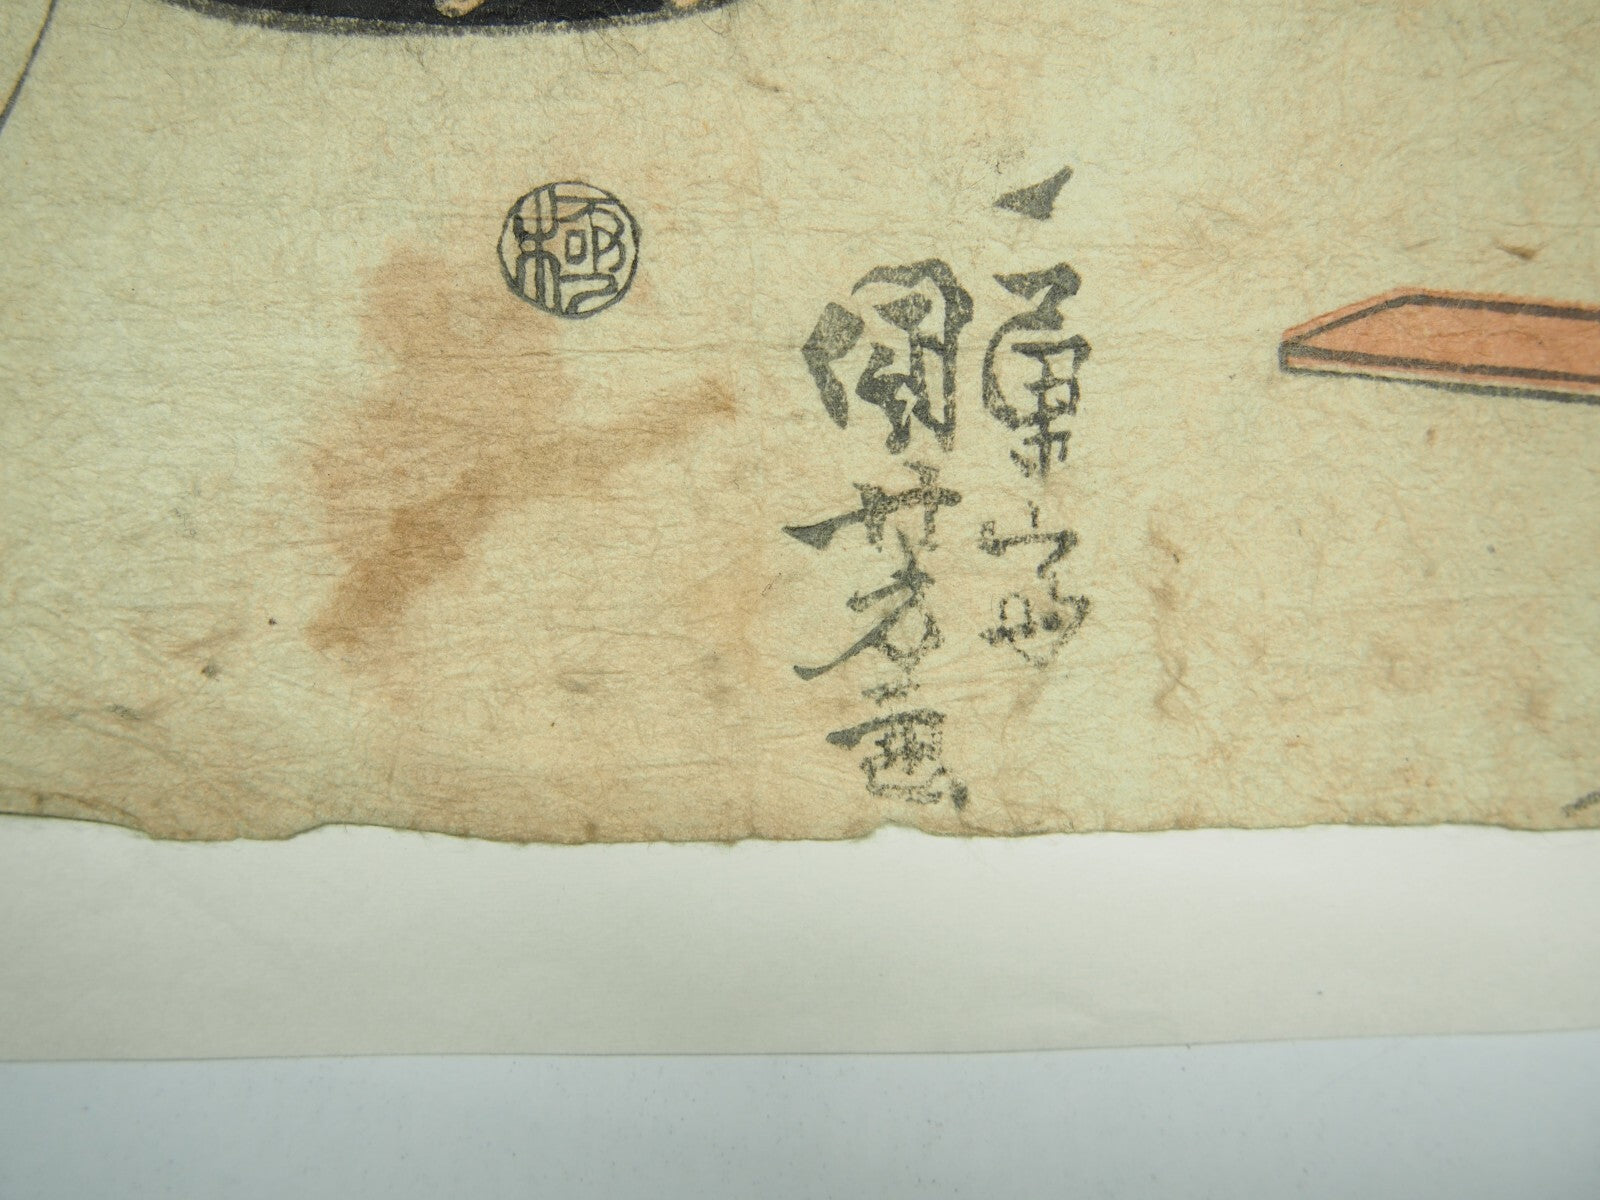 一勇斎
國芳画
極